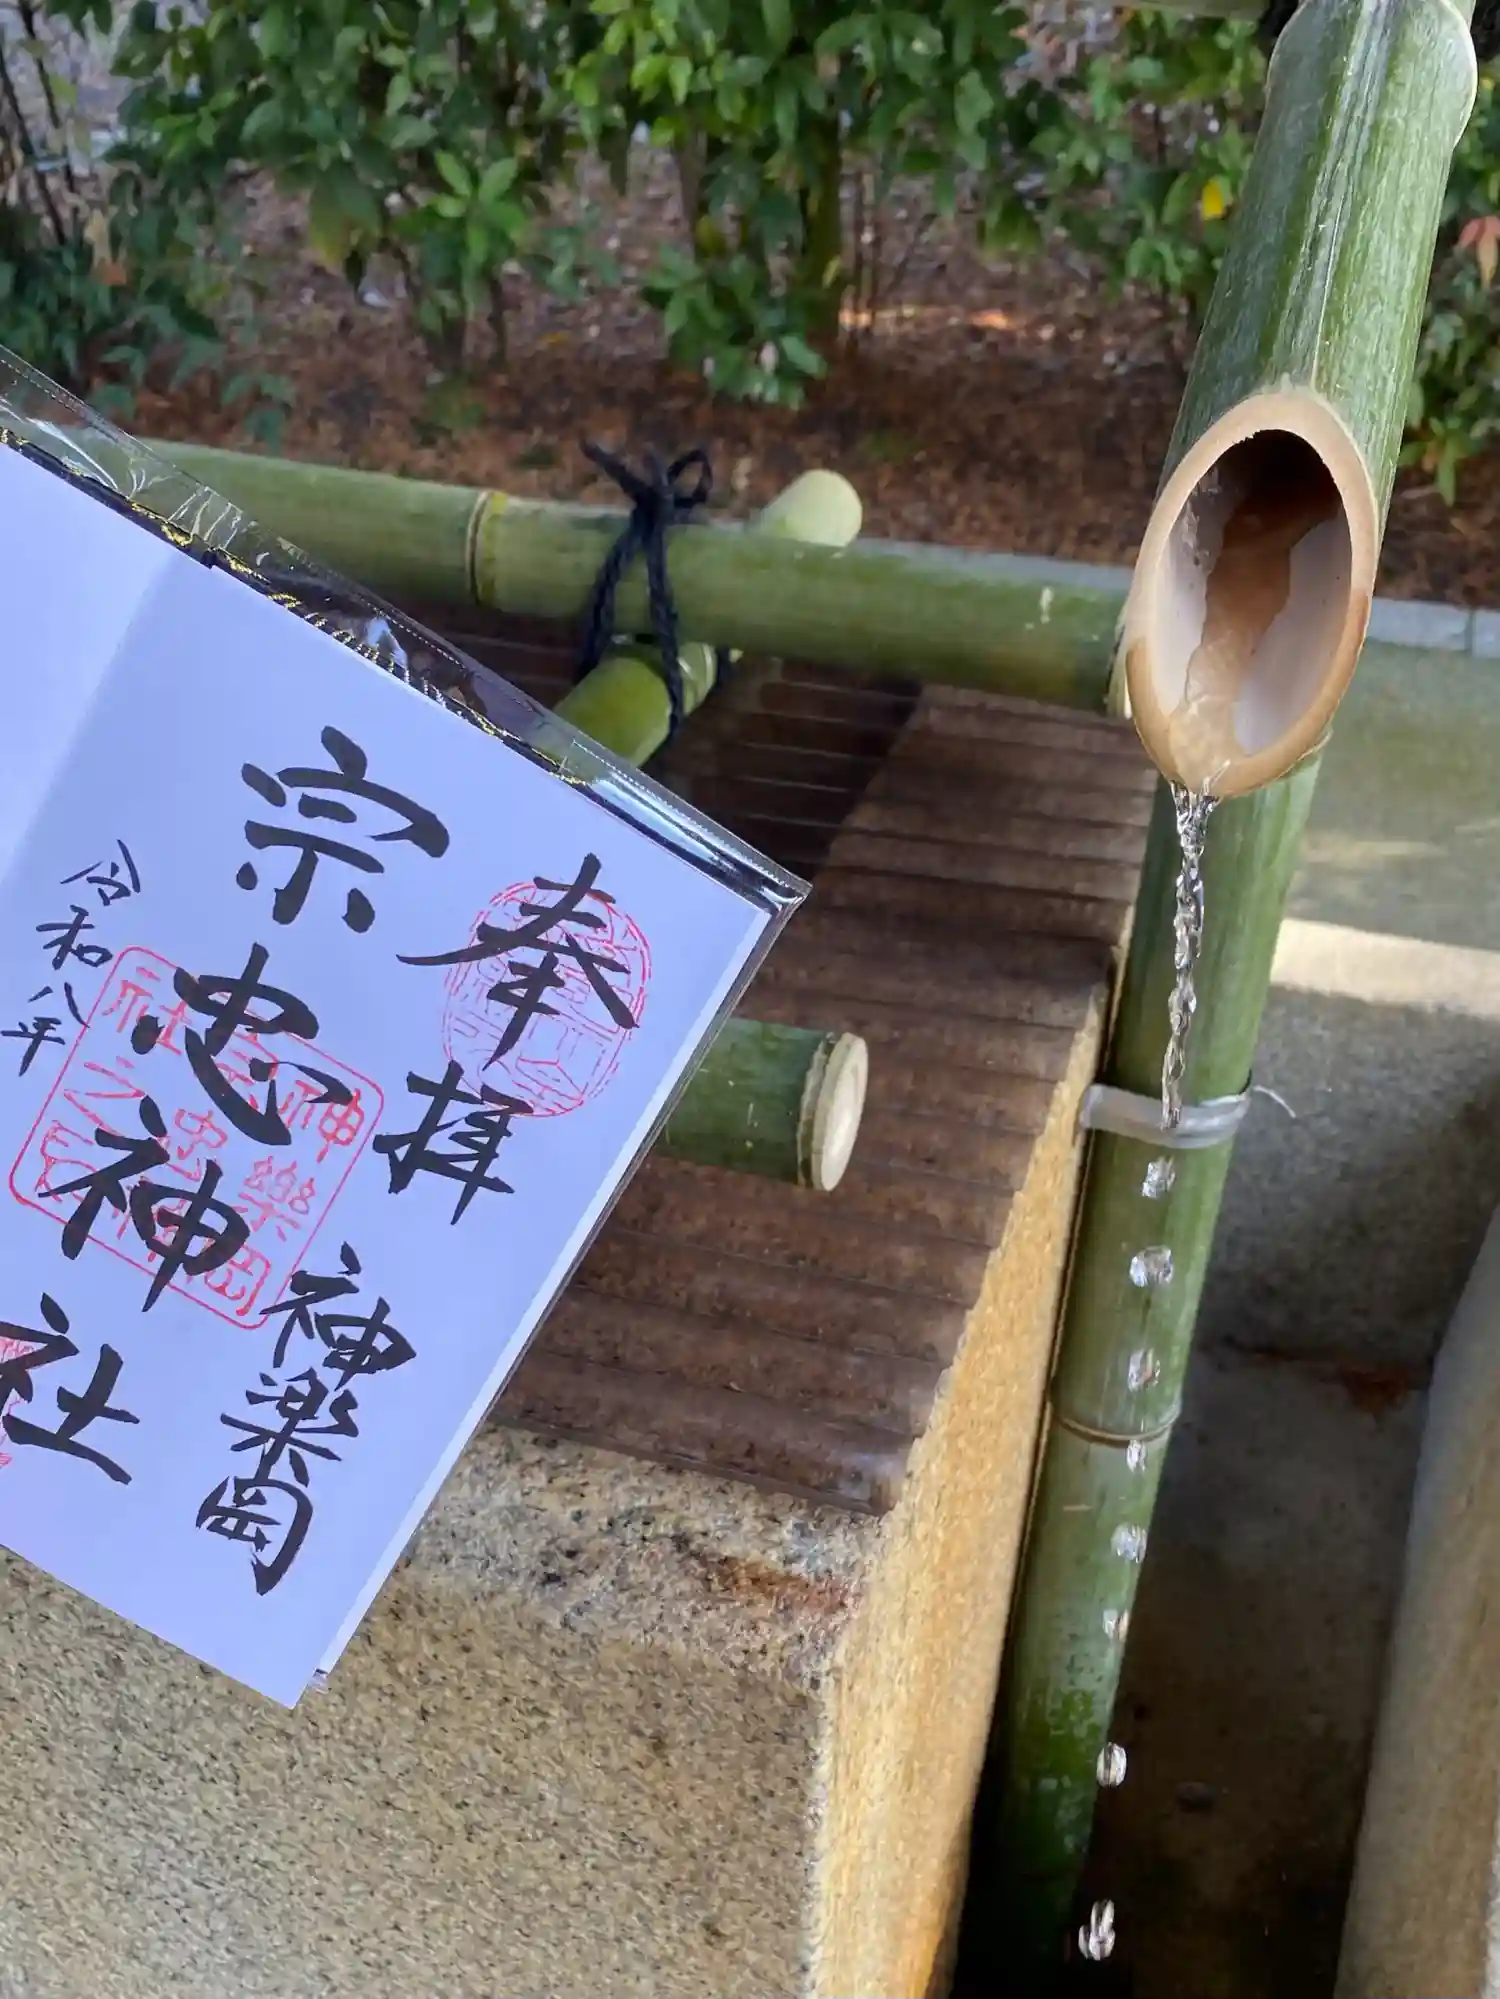 奉拝
神楽岡
宗忠神社
令和八年
神楽岡
宗忠神
社之印